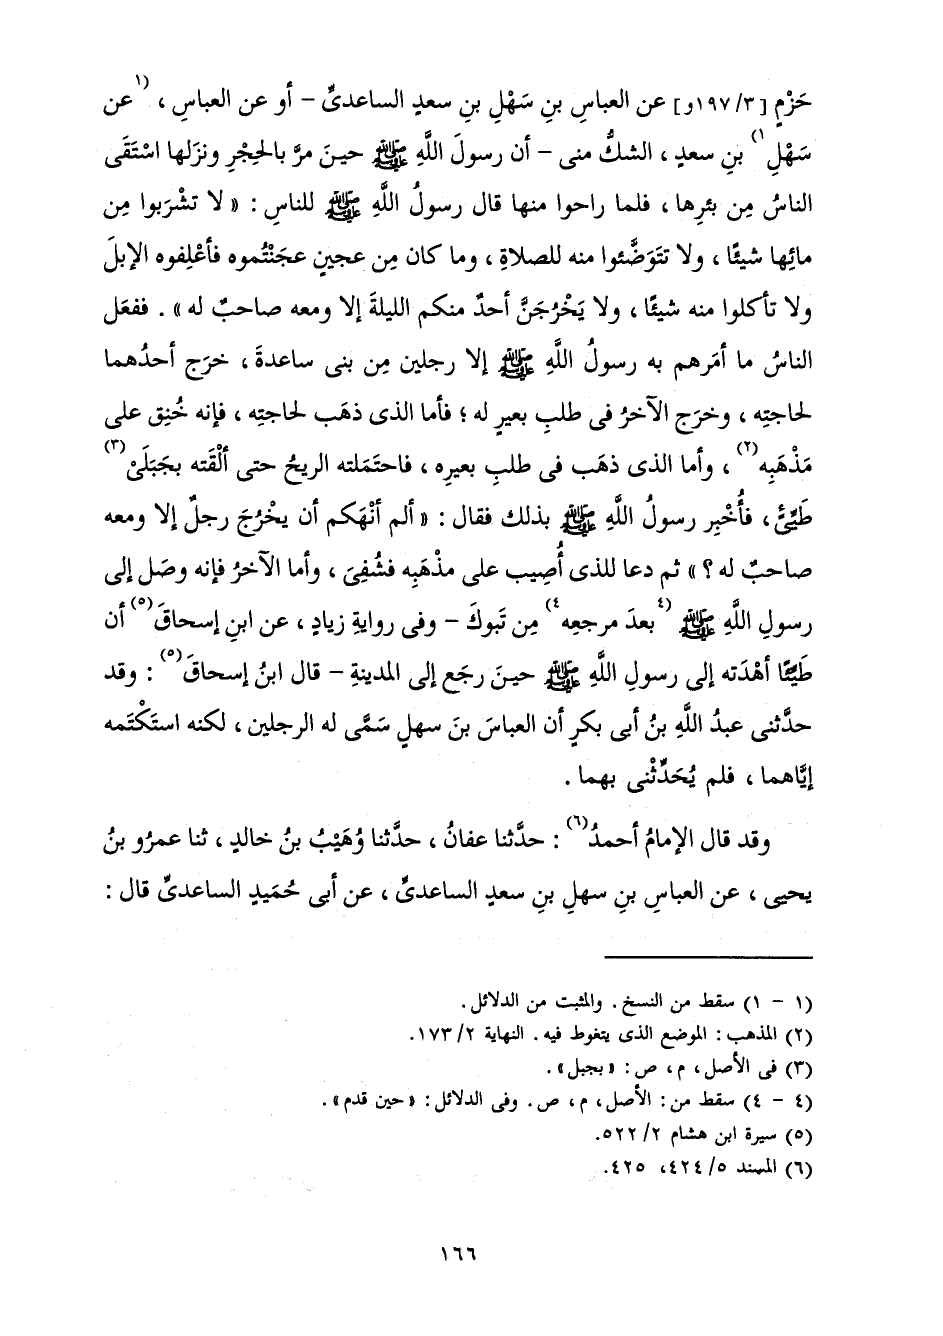 حَزْمٍ [٣/ ١٩٧و] عن العباسِ بنِ سَهْلِ بنِ سعدٍ الساعدىِّ – أو عن العباسِ ، (١عن
سَهْلِ١) بنِ سعدٍ ، الشكُّ منى – أن رسولَ اللَّهِ ﷺ حينَ مرَّ بالحِجْرِ ونزَلها اسْتَقَى
الناسُ مِن بئرِها ، فلما راحوا منها قال رسولُ اللَّهِ ﷺ للناسِ : « لا تشْرَبوا مِن
مائِها شيئًا ، ولا تتَوَضَّئوا منه للصلاةِ ، وما كان مِن عجينٍ عجَنْتُموه فأعْلِفوه الإبلَ
ولا تأكلوا منه شيئًا ، ولا يَخْرُجَنَّ أحدٌ منكم الليلةَ إلا ومعه صاحبٌ له » . ففعَل
الناسُ ما أمَرهم به رسولُ اللَّهِ ﷺ إلا رجلين مِن بنى ساعدةَ ، خرَج أحدُهما
لحاجتِه ، وخرَج الآخرُ فى طلبِ بعيرٍ له ؛ فأما الذى ذهَب لحاجتِه ، فإنه خُنِق على
مَذْهَبِه(٢) ، وأما الذى ذهَب فى طلبِ بعيرِه ، فاحتَمَلته الريحُ حتى ألْقَته بجَبَلَىْ(٣)
طَيِّئٍ ، فأُخْبِر رسولُ اللَّهِ ﷺ بذلك فقال : « ألم أنْهَكم أن يخْرُجَ رجلٌ إلا ومعه
صاحبٌ له ؟ » ثم دعا للذى أُصِيب على مذْهَبِه فشُفِىَ ، وأما الآخرُ فإنه وصَل إلى
رسولِ اللَّهِ ﷺ (٤بعدَ مرجعِه٤) مِن تَبوكَ – وفى روايةِ زيادٍ ، عن ابنِ إسحاقَ(٥) أن
طَيِّئًا أهْدَته إلى رسولِ اللَّهِ ﷺ حينَ رجَع إلى المدينةِ – قال ابنُ إسحاقَ(٥) : وقد
حدَّثنى عبدُ اللَّهِ بنُ أبى بكرٍ أن العباسَ بنَ سهلٍ سَمَّى له الرجلين ، لكنه استَكْتَمه
إيَّاهما ، فلم يُحَدِّثْنى بهما .
وقد قال الإمامُ أحمدُ(٦) : حدَّثنا عفانُ ، حدَّثنا وُهَيْبُ بنُ خالدٍ ، ثنا عمرُو بنُ
يحيى ، عن العباسِ بنِ سهلِ بنِ سعدٍ الساعدىِّ ، عن أبى حُمَيدٍ الساعدىِّ قال :
(١ – ١) سقط من النسخ . والمثبت من الدلائل .
(٢) المذهب : الموضع الذى يتغوط فيه . النهاية ٢/ ١٧٣.
(٣) فى الأصل ، م ، ص : « بجبل » .
(٤ – ٤) سقط من : الأصل ، م ، ص . وفى الدلائل : « حين قدم » .
(٥) سيرة ابن هشام ٢/ ٥٢٢.
(٦) المسند ٥/ ٤٢٤، ٤٢٥.
١٦٦